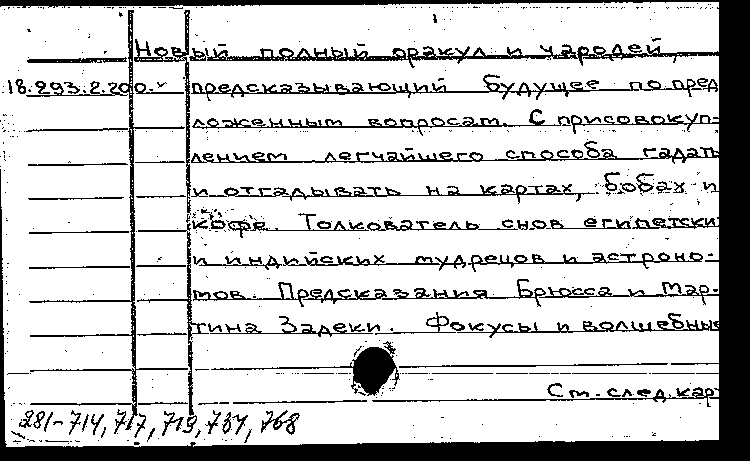 Новый полный оракул и чародей,
18.293.2.200. предсказывающий будущее по пред
ложенным вопросам. С присовокуп=
лением легчайшего способа гадать
и отгадывать на картах, бобах и
кофе. Толкователь снов египетски
и индийских мудрецов и астроно-
мов. Предсказания Брюсса и Мар-
тина Задеки. Фокусы и волшебные
См. след. кар
281-714, 717, 719, 737, 768